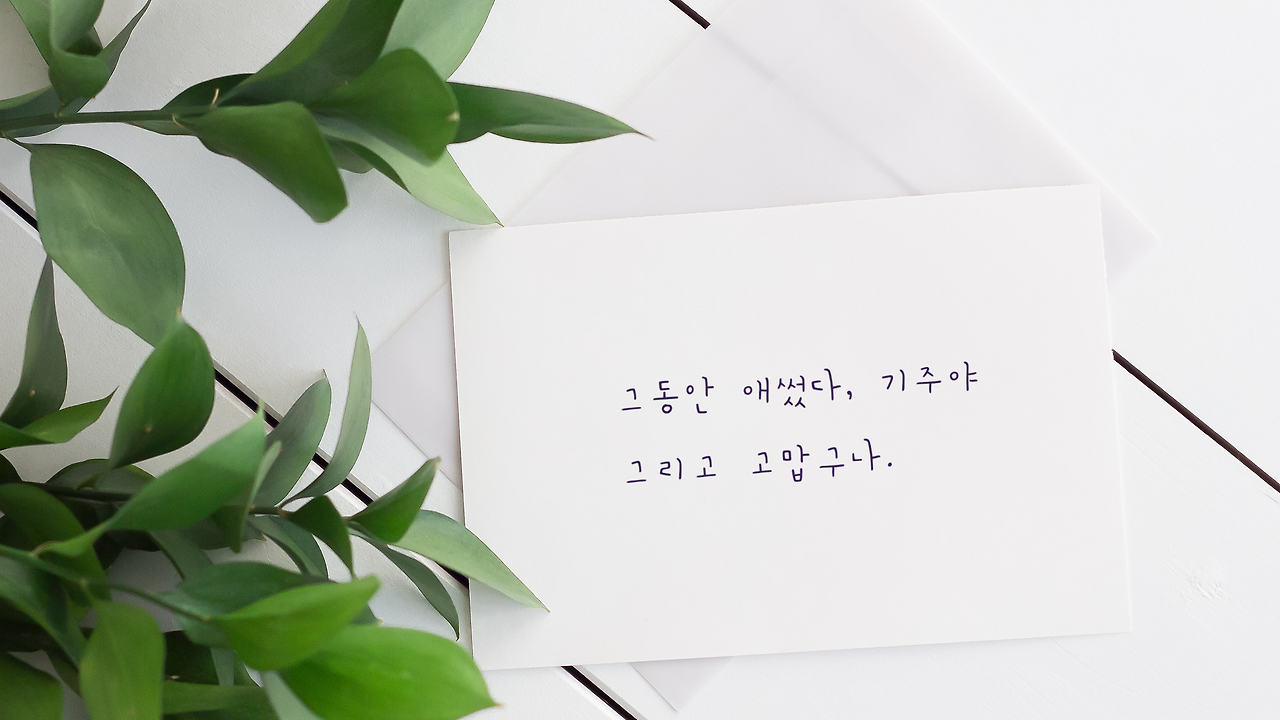 그동안 애썼다, 기주야
그리고 고맙구나.